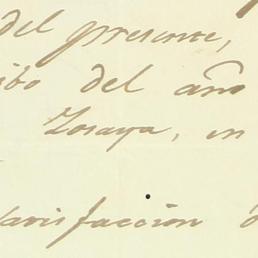 del presente,
ibo del año
Zoraya, en
satisfaccion